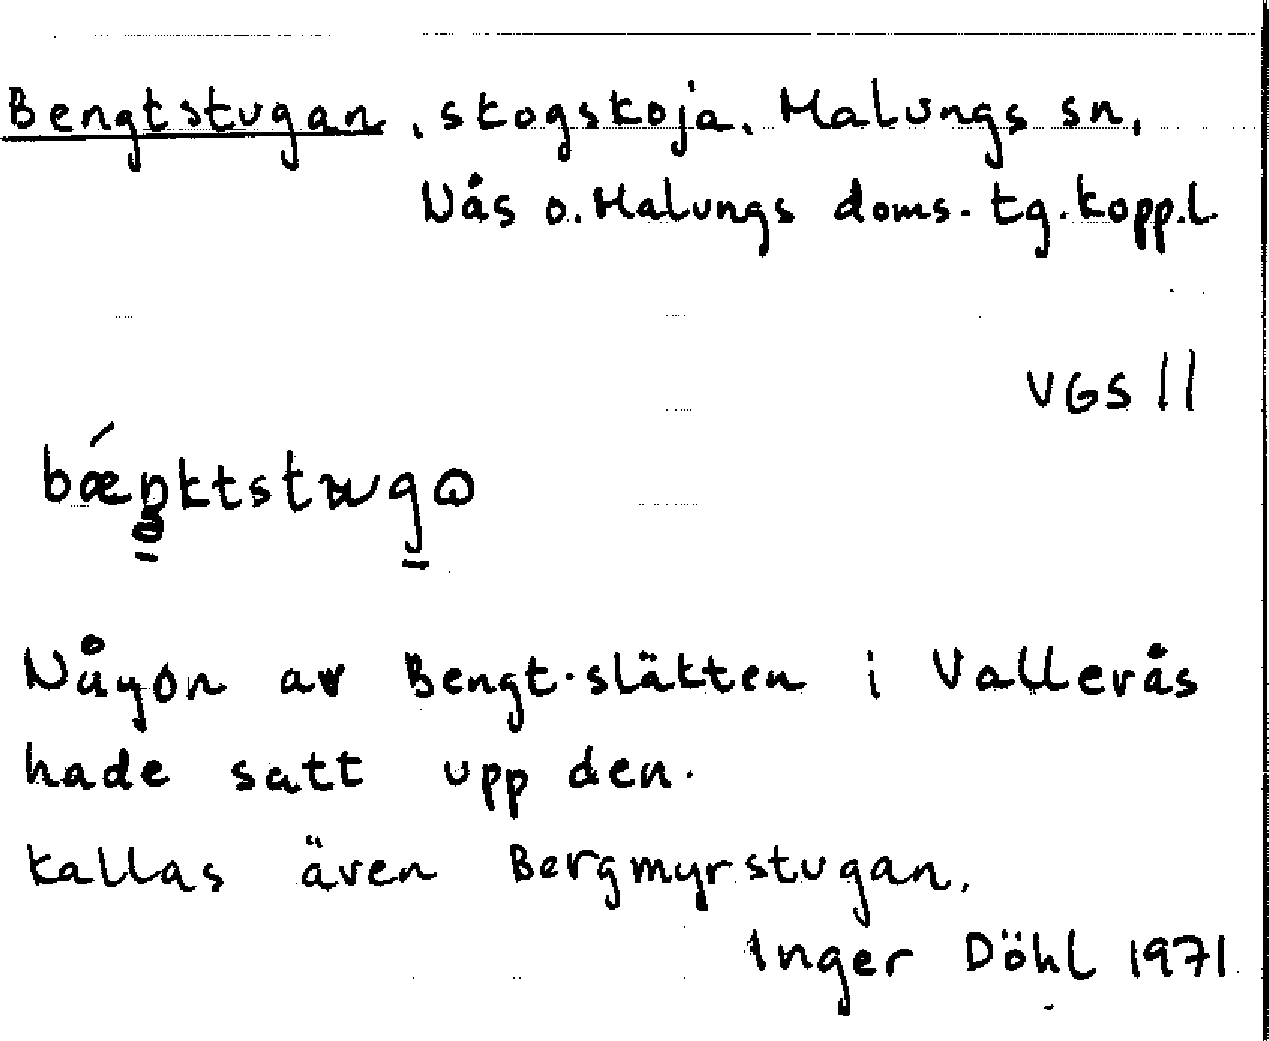 Bengtstugan, skogskoja, Malungs sn,
Nås o. Malungs doms. tg. kopp.l.
VGS II
Någon av Bengt-släkten i Vallerås
hade satt upp den.
kallas även Bergmyrstugan.
Inger Döhl 1971